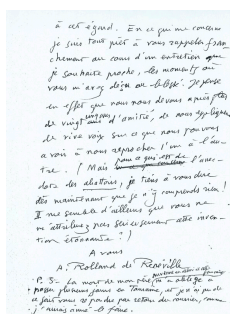 à cet égard. En ce qui me concerne
je suis tout prêt à vous rappeler fran-
chement au cours d'un entretien que
je souhaite proche, les moments où
vous m'avez déçu ou blessé. Je pense
en effet que nous nous devons après plus
de vingt ans d'amitié, de nous expliquer
de vive voix sur ce que nous pouvons
avoir à nous reprocher l'un à l'au-
tre. (Mais pour ce qui est de l'anec-
dote des abattoirs, je tiens à vous dire
dès maintenant que je n'y comprends rien!
Il me semble d'ailleurs que vous ne
m'attribuez pas sérieusement cette inven-
tion étonnante!)
A vous
A. Rolland de Renéville
P. S. La mort de mon père m'a obligé à
passer plusieurs jours en Touraine, et je n'ai pu de
ce fait vous répondre par retour du courrier, comme
j'aurais aimé le faire.